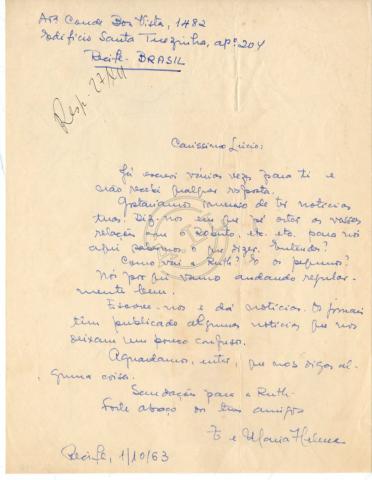 Av. Conde Boa Vista, 1482
Edifício Santa Terezinha, apº 204
Recife - BRASIL
Resp. 27/XII
Caríssimo Lúcio:
Já escrevi várias vezes para ti e
não recebi qualquer resposta.
Gostaríamos imenso de ter notícias
tuas! Diz-nos em que pé estão as vossas
relações com o Roberto, etc. etc. para nós
aqui sabermos o que dizer. Entendes?
Como vai a Ruth? E os pequenos?
Nós por cá vamos andando regular-
mente bem.
Escreve-nos e dá notícias. Os jornais
têm publicado algumas notícias que nos
deixam um pouco confusos.
Aguardamos, que nos digas al-
guma coisa.
Saudação para a Ruth.
Forte abraço dos teus amigos
e Maria Helena
Recife, 1/10/63